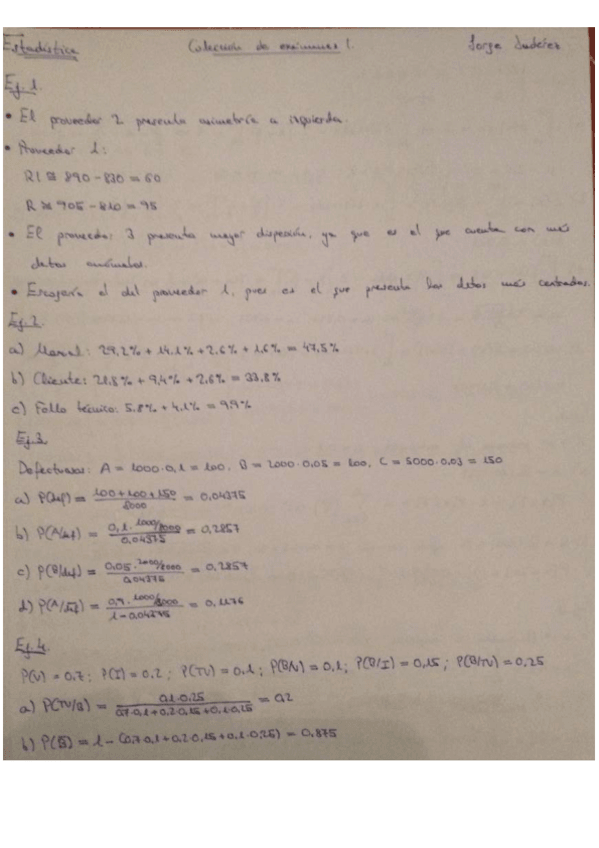 Estadística Colección de exámenes 1. Jorge Judérez
Ej. 1.
• El proveedor 2 presenta asimetría a izquierda.
• Proveedor 1:
RI ≅ 890 - 830 = 60
R ≅ 905 - 810 = 95
• El proveedor 3 presenta mayor dispersión, ya que es el que cuenta con más
datos anómalos.
• Escogería el del proveedor 1, pues es el que presenta los datos más centrados.
Ej. 2.
a) Manual: 29,2% + 14,1% + 2,6% + 1,6% = 47,5%
b) Cliente: 21,8% + 9,4% + 2,6% = 33,8%
c) Fallo técnico: 5,8% + 4,1% = 9,9%
Ej. 3.
Defectuosos: A = 1000·0,1 = 100, B = 2000·0,05 = 100, C = 5000·0,03 = 150
a) P(def) = (100+100+150)/8000 = 0,04375
b) P(A/def) = (0,1 · 1000/8000)/0,04375 = 0,2857
c) P(B/def) = (0,05 · 2000/8000)/0,04375 = 0,2857
d) P(A/def) = (0,9 · 1000/8000)/(1-0,04375) = 0,1176
Ej. 4.
P(V) = 0,7; P(I) = 0,2; P(TV) = 0,1; P(B/V) = 0,1; P(B/I) = 0,15; P(B/TV) = 0,25
a) P(TV/B) = (0,1·0,25)/(0,7·0,1+0,2·0,15+0,1·0,25) = 0,2
b) P(B̅) = 1 - (0,7·0,1+0,2·0,15+0,1·0,25) = 0,875